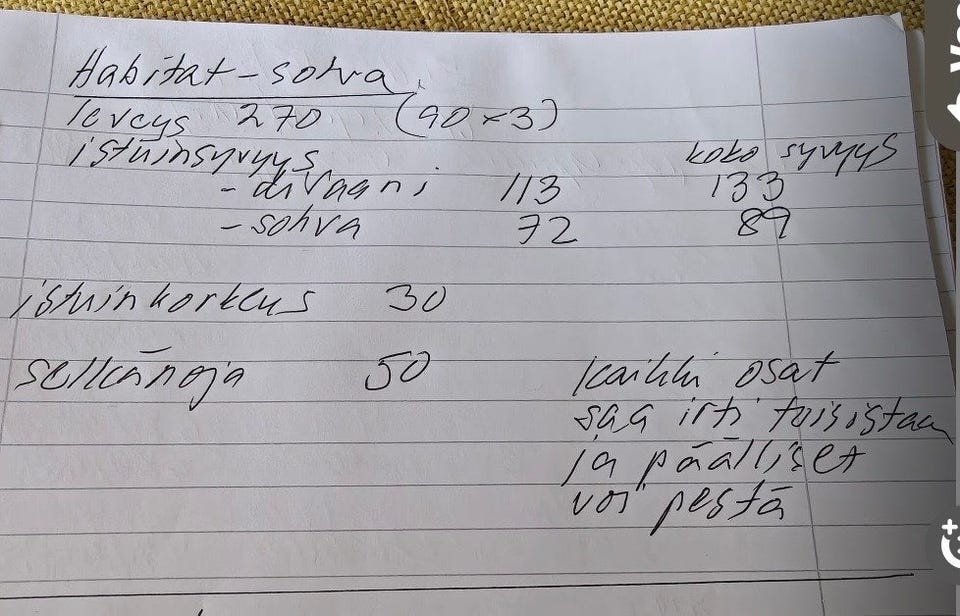 Habitat-sohva
leveys 270 (90 x 3)
istuinsyvyys koko syvyys
- divaani 113 133
- sohva 72 89
istuinkorkeus 30
selkänoja 50
kaikki osat
saa irti toisistaan
ja päälliset
voi pestä